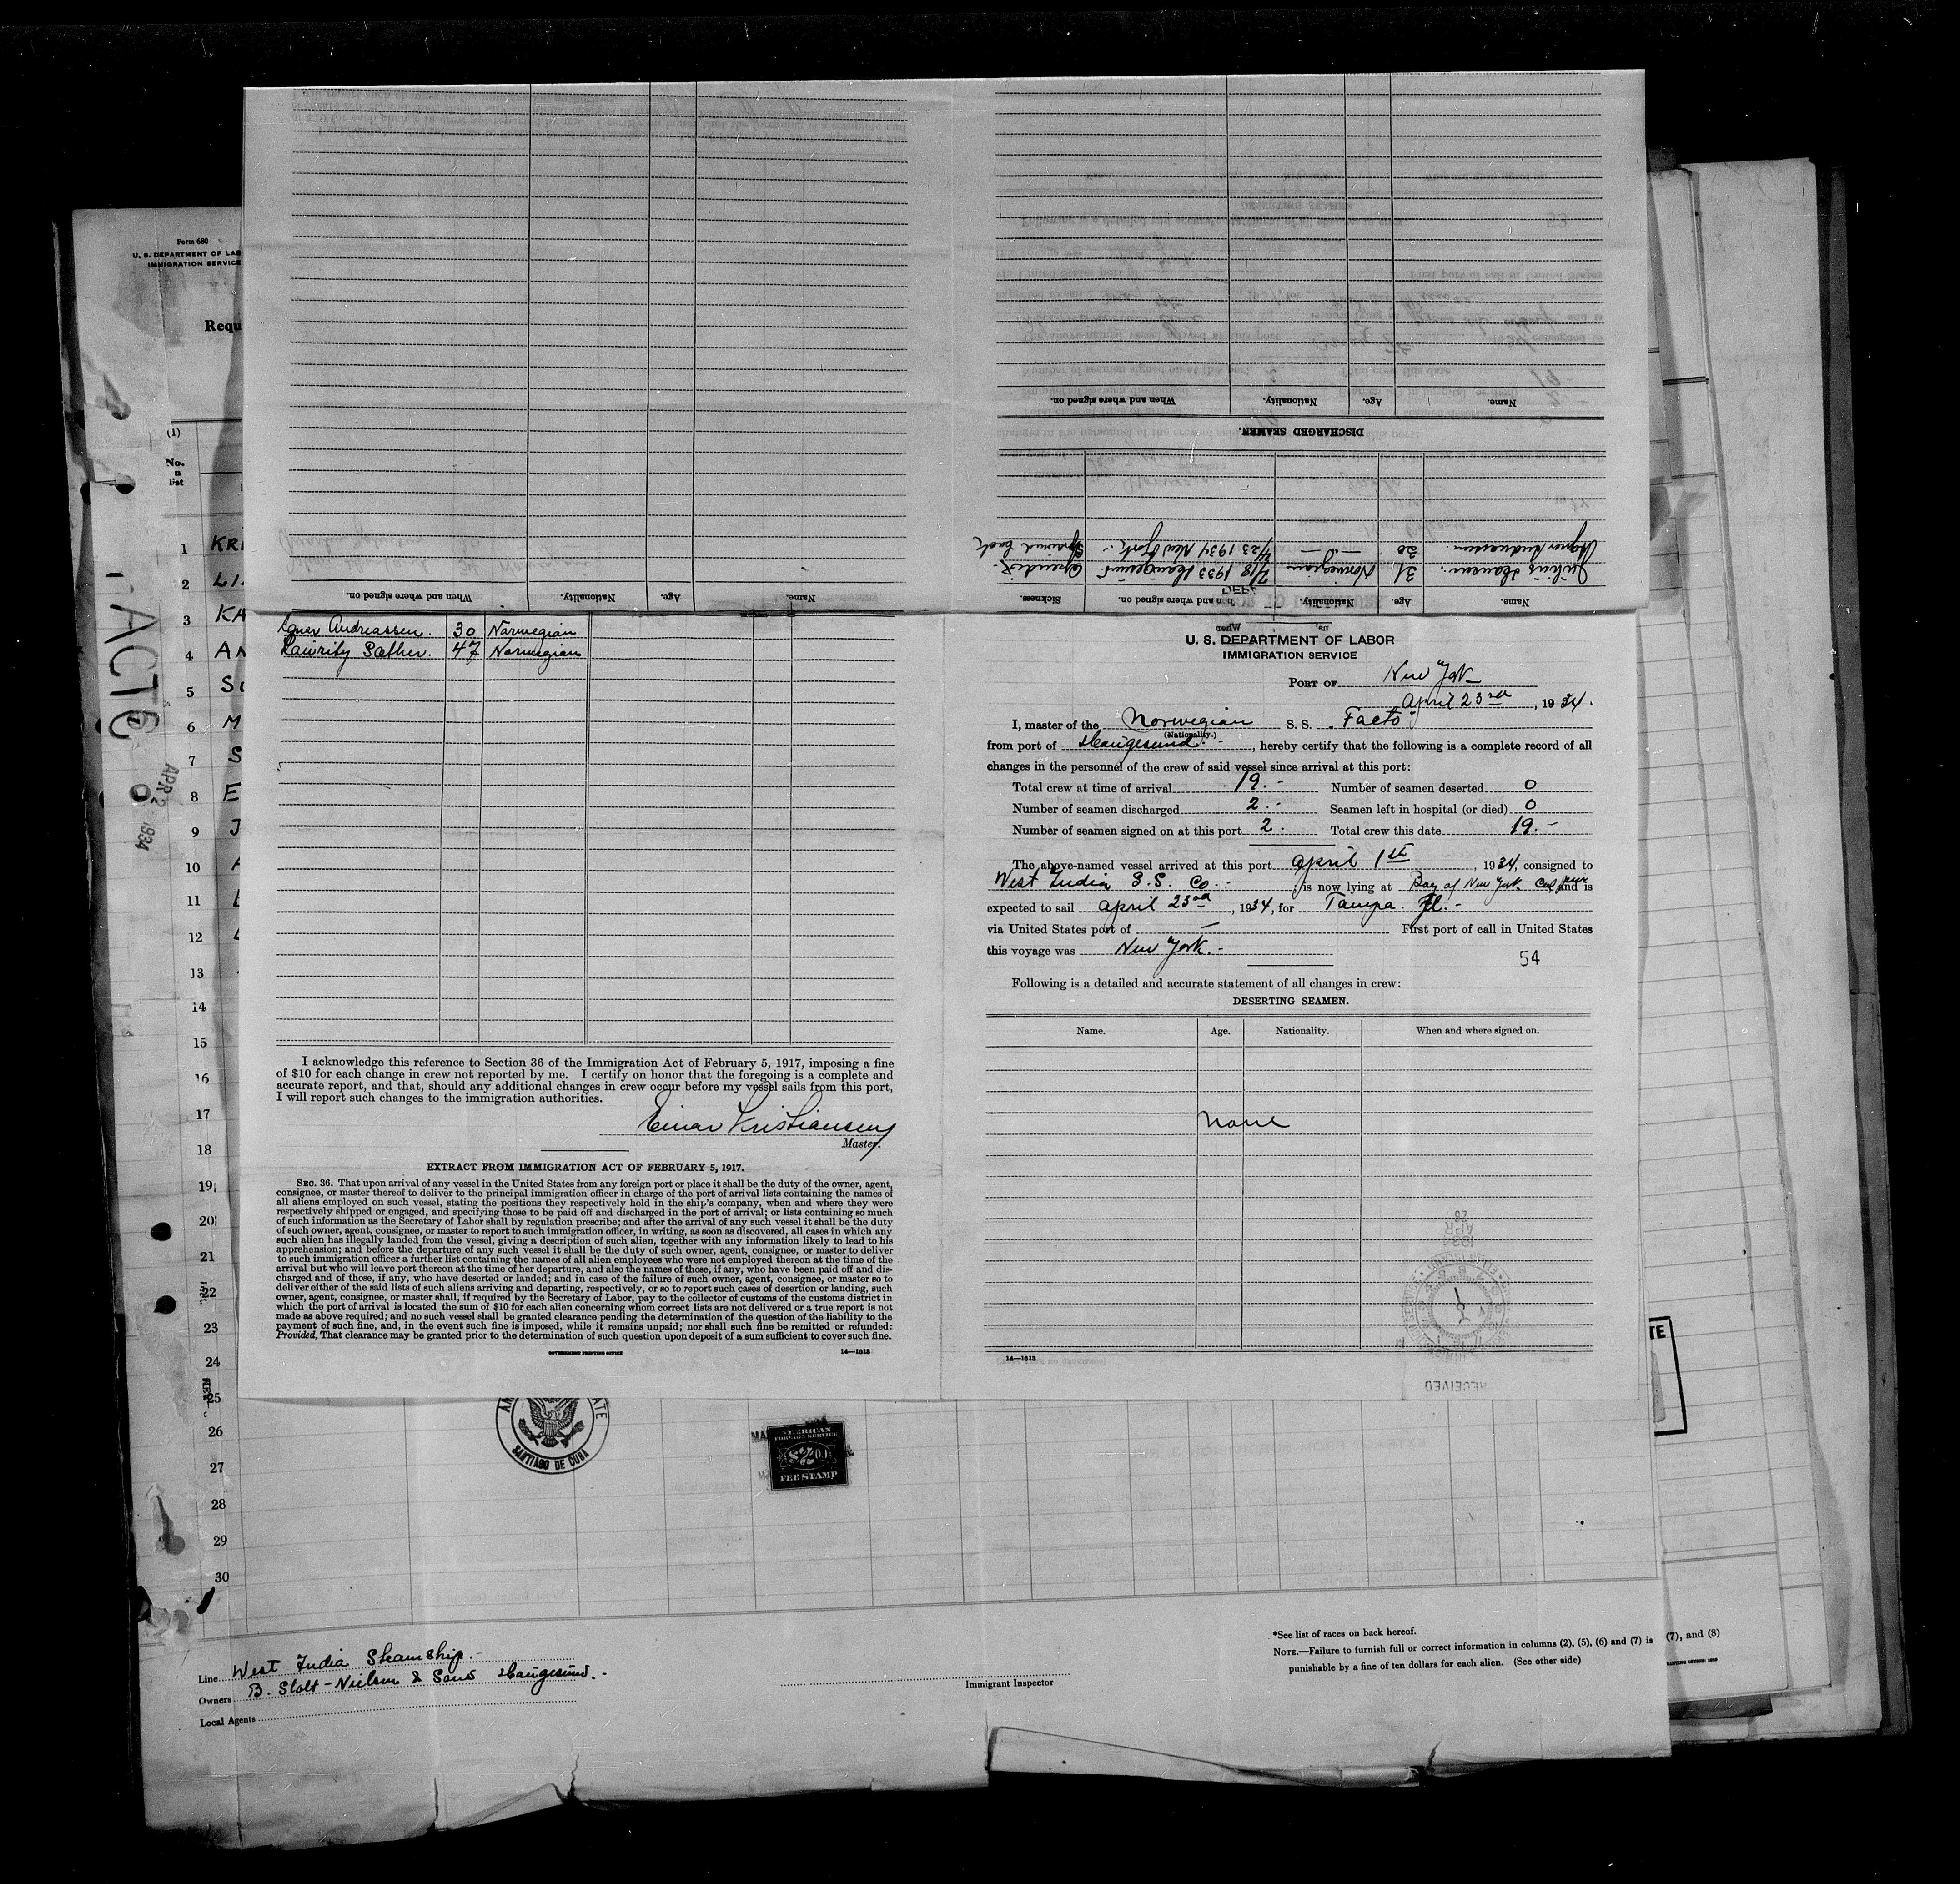 Form 680
U. S. DEPARTMENT OF LAB
IMMIGRATION SERVICE
Requ
(1)
No.
n
list
1 KRI
2 LI
3 KA
4 AN
5 S
6 M
7 S
8 E
9 J
10 A
11
12
13
14
15
16
17
18
19
20
21
22
23
24
25
26
27
28
29
30
APR 2 1934
When and where signed on. Nationality. Age. Name.
When and where signed on. Nationality. Age. Name.
DISCHARGED SEAMEN.
Sickness. When and where signed on. Nationality. Age. Name.
7/8 1933 Haugesund Norwegian 31 Julius
4/23 1934 New York.- —"— 30 Andreassen.
Andreassen. 30 Norwegian
Sæther. 47 Norwegian
I acknowledge this reference to Section 36 of the Immigration Act of February 5, 1917, imposing a fine
of $10 for each change in crew not reported by me. I certify on honor that the foregoing is a complete and
accurate report, and that, should any additional changes in crew occur before my vessel sails from this port,
I will report such changes to the immigration authorities.
Einar Kristiansen
Master.
EXTRACT FROM IMMIGRATION ACT OF FEBRUARY 5, 1917.
SEC. 36. That upon arrival of any vessel in the United States from any foreign port or place it shall be the duty of the owner, agent,
consignee, or master thereof to deliver to the principal immigration officer in charge of the port of arrival lists containing the names of
all aliens employed on such vessel, stating the positions they respectively hold in the ship's company, when and where they were
respectively shipped or engaged, and specifying those to be paid off and discharged in the port of arrival; or lists containing so much
of such information as the Secretary of Labor shall by regulation prescribe; and after the arrival of any such vessel it shall be the duty
of such owner, agent, consignee, or master to report to such immigration officer, in writing, as soon as discovered, all cases in which any
such alien has illegally landed from the vessel, giving a description of such alien, together with any information likely to lead to his
apprehension; and before the departure of any such vessel it shall be the duty of such owner, agent, consignee, or master to deliver
to such immigration officer a further list containing the names of all alien employees who were not employed thereon at the time of the
arrival but who will leave port thereon at the time of her departure, and also the names of those, if any, who have been paid off and dis-
charged and of those, if any, who have deserted or landed; and in case of the failure of such owner, agent, consignee, or master so to
deliver either of the said lists of such aliens arriving and departing, respectively, or so to report such cases of desertion or landing, such
owner, agent, consignee, or master shall, if required by the Secretary of Labor, pay to the collector of customs of the customs district in
which the port of arrival is located the sum of $10 for each alien concerning whom correct lists are not delivered or a true report is not
made as above required; and no such vessel shall be granted clearance pending the determination of the question of the liability to the
payment of such fine, and, in the event such fine is imposed, while it remains unpaid; nor shall such fine be remitted or refunded:
Provided, That clearance may be granted prior to the determination of such question upon deposit of a sum sufficient to cover such fine.
GOVERNMENT PRINTING OFFICE 14—1613
U. S. DEPARTMENT OF LABOR
IMMIGRATION SERVICE
PORT OF New York
April 23rd, 1934.
I, master of the Norwegian S. S. Facto
(Nationality.)
from port of Haugesund.-, hereby certify that the following is a complete record of all
changes in the personnel of the crew of said vessel since arrival at this port:
Total crew at time of arrival 19.- Number of seamen deserted 0
Number of seamen discharged 2.- Seamen left in hospital (or died) 0
Number of seamen signed on at this port 2. Total crew this date 19.-
The above-named vessel arrived at this port April 1st, 1934, consigned to
West India S.S. Co.- is now lying at Bay of New York and is
expected to sail April 23rd, 1934, for Tampa. Fl.-
via United States port of — First port of call in United States
this voyage was New York.-
54
Following is a detailed and accurate statement of all changes in crew:
DESERTING SEAMEN.
Name. Age. Nationality. When and where signed on.
None
14—1613
RECEIVED
SANTIAGO DE CUBA
AMERICAN
FOREIGN SERVICE
FEE STAMP
Line West India Steamship.-
Owners B. Stolt-Nielsen & Sons Haugesund.-
Local Agents
Immigrant Inspector
*See list of races on back hereof.
NOTE.—Failure to furnish full or correct information in columns (2), (5), (6) and (7) is (7), and (8)
punishable by a fine of ten dollars for each alien. (See other side)